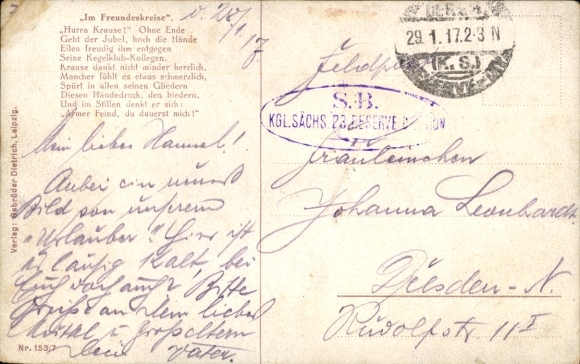 „Im Freundeskreise“.
„Hurra Krause!“ Ohne Ende
Geht der Jubel, hoch die Hände
Eilen freudig ihm entgegen
Seine Kegelklub-Kollegen.
Krause dankt nicht minder herzlich,
Mancher fühlt es etwas schmerzlich,
Spürt in allen seinen Gliedern
Diesen Händedruck, den biedern,
Und im Stillen denkt er sich:
„Armer Feind, du dauerst mich!“
d. 28/1. 17.
29.1.17.2-3 N
(K.S.)
Feldpost
S.B.
KGL. SÄCHS. 23. RESERVE DIVISION
Mein liebes Hannel!
Anbei ein neues
Bild von unserem
„Urlauber“. Hier ist
es lausig kalt, bei
Euch doch auch? Bitte
Grüße an den lieben
u. Großeltern
Dein Vater.
Fräulein
Johanna Leonhardt
Dresden-N.
Rudolfstr. 11 I
Verlag: Gebrüder Dietrich, Leipzig.
Nr. 153/7